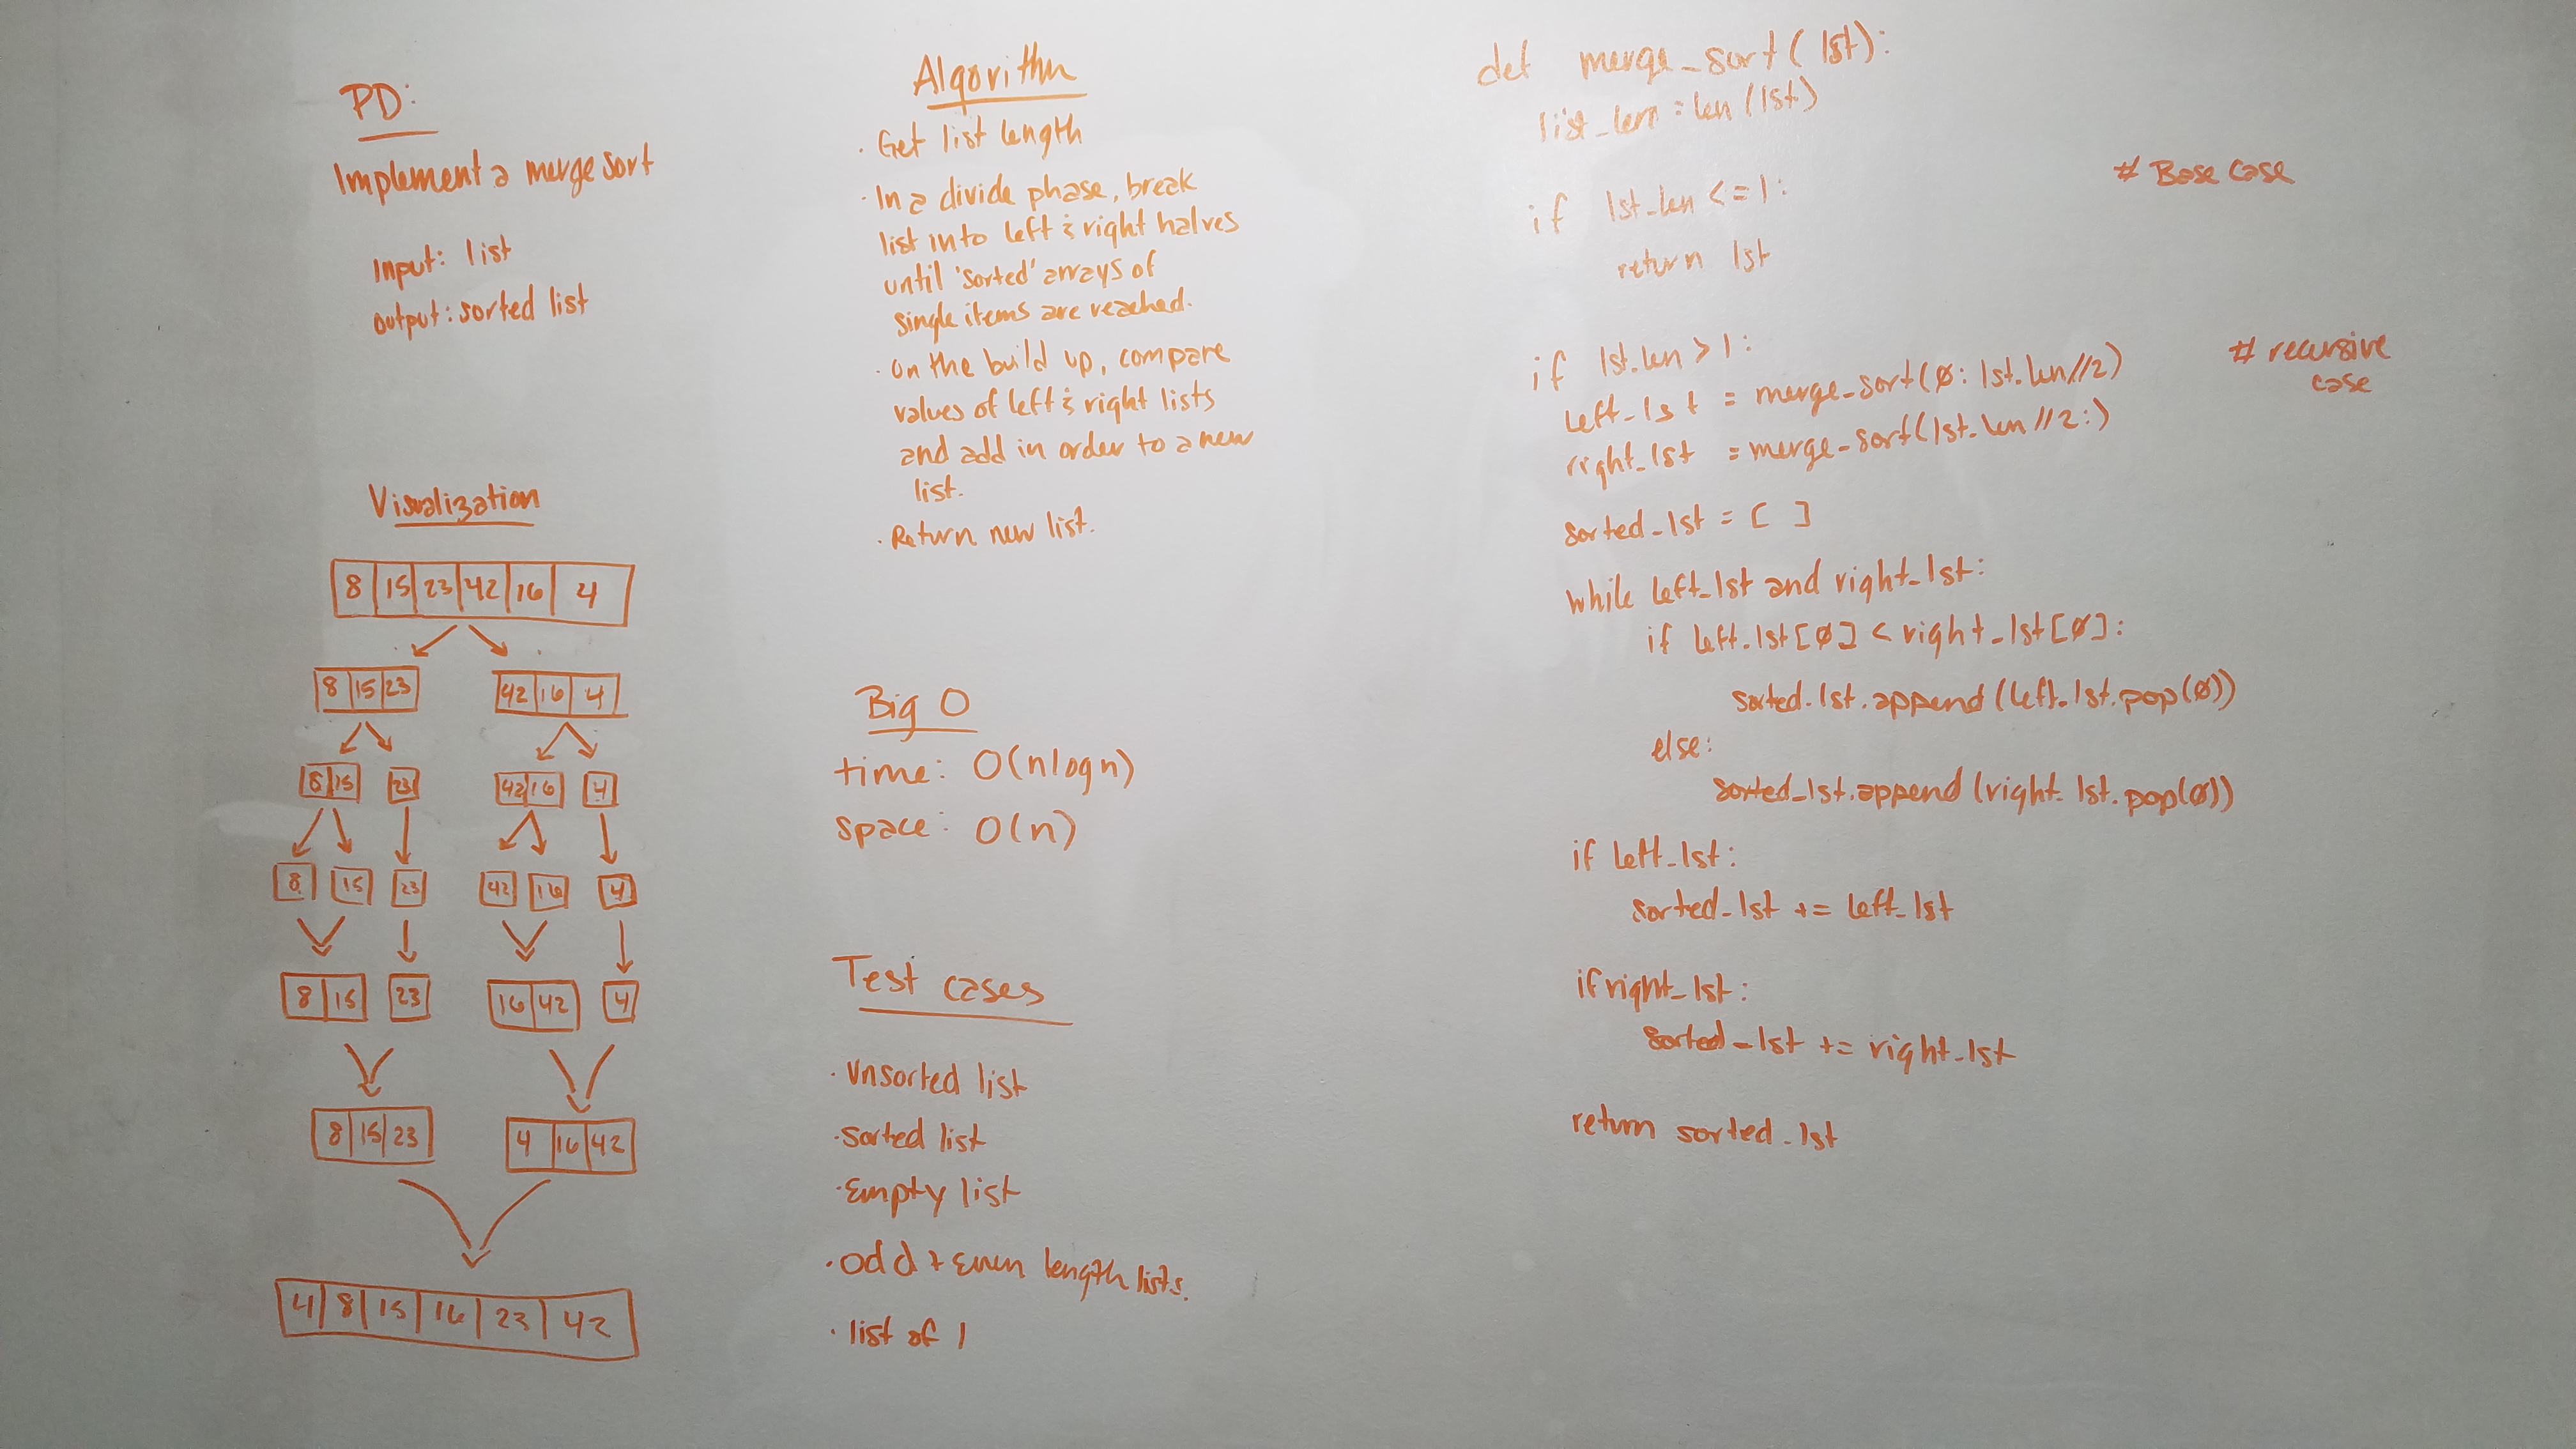 PD:
Implement a merge sort
Input: list
output: sorted list
Visualization
8 15 23 42 16 4
8 15 23 42 16 4
8 15 23 42 16 4
8 15 23 42 16 4
8 15 23 16 42 4
8 15 23 4 16 42
4 8 15 16 23 42
Algorithm
· Get list length
· In a divide phase, break
list into left & right halves
until 'sorted' arrays of
single items are reached.
· on the build up, compare
values of left & right lists
and add in order to a new
list.
· Return new list.
Big O
time: O(nlogn)
space: O(n)
Test cases
· Unsorted list
· sorted list
· Empty list
· odd + Even length lists.
· list of 1
def merge_sort(lst):
list_len = len(lst)
if lst_len <= 1: # Base case
return lst
if lst_len > 1: # recursive
case
left_lst = merge_sort(0: lst_len//2)
right_lst = merge_sort(lst_len//2:)
sorted_lst = [ ]
while left_lst and right_lst:
if left_lst[0] < right_lst[0]:
sorted_lst.append(left_lst.pop(0))
else:
sorted_lst.append(right_lst.pop(0))
if left_lst:
sorted_lst += left_lst
if right_lst:
sorted_lst += right_lst
return sorted_lst